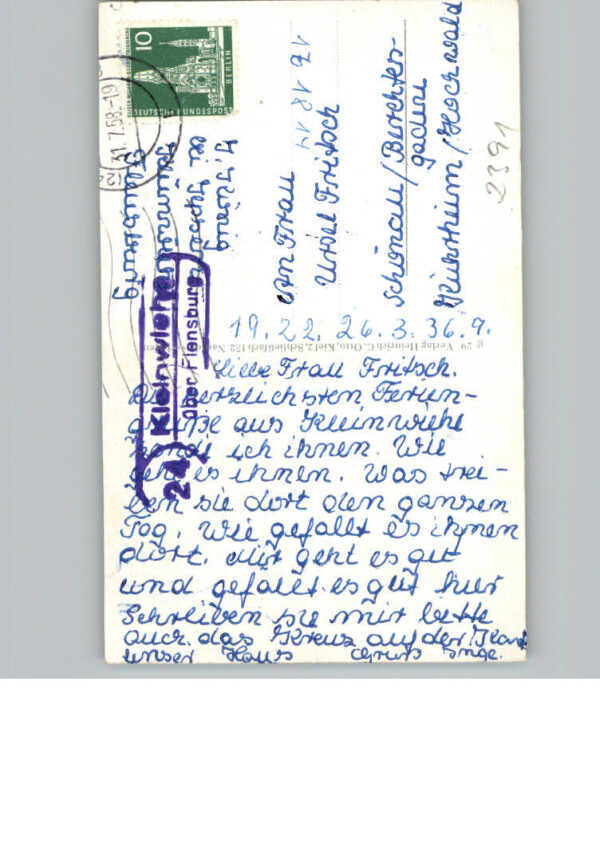 10
DEUTSCHE BUNDESPOST
BERLIN
31.7.58-19
(24b) Kleinwiehe
über Flensburg
17 18 14
An Frau
Ursel Fritsch
Schönau/Berchtes-
gaden
/Hochwald
2391
19. 22. 26. 3. 36. 9.
g 29 Verlag Heinrich C. Otto, Kiel 2, Schließfach 152.
Liebe Frau Fritsch.
Die herzlichsten Ferien-
grüße aus Kleinwiehe
sende ich ihnen. Wie
geht es ihnen. Was trei-
ben sie dort den ganzen
Tog. Wie gefallt es ihnen
dort. Mir geht es gut
und gefallt es gut hier
Schreiben sie mir bitte
auch. das Kreuz auf der Kart
unser Haus Gruß Inge.